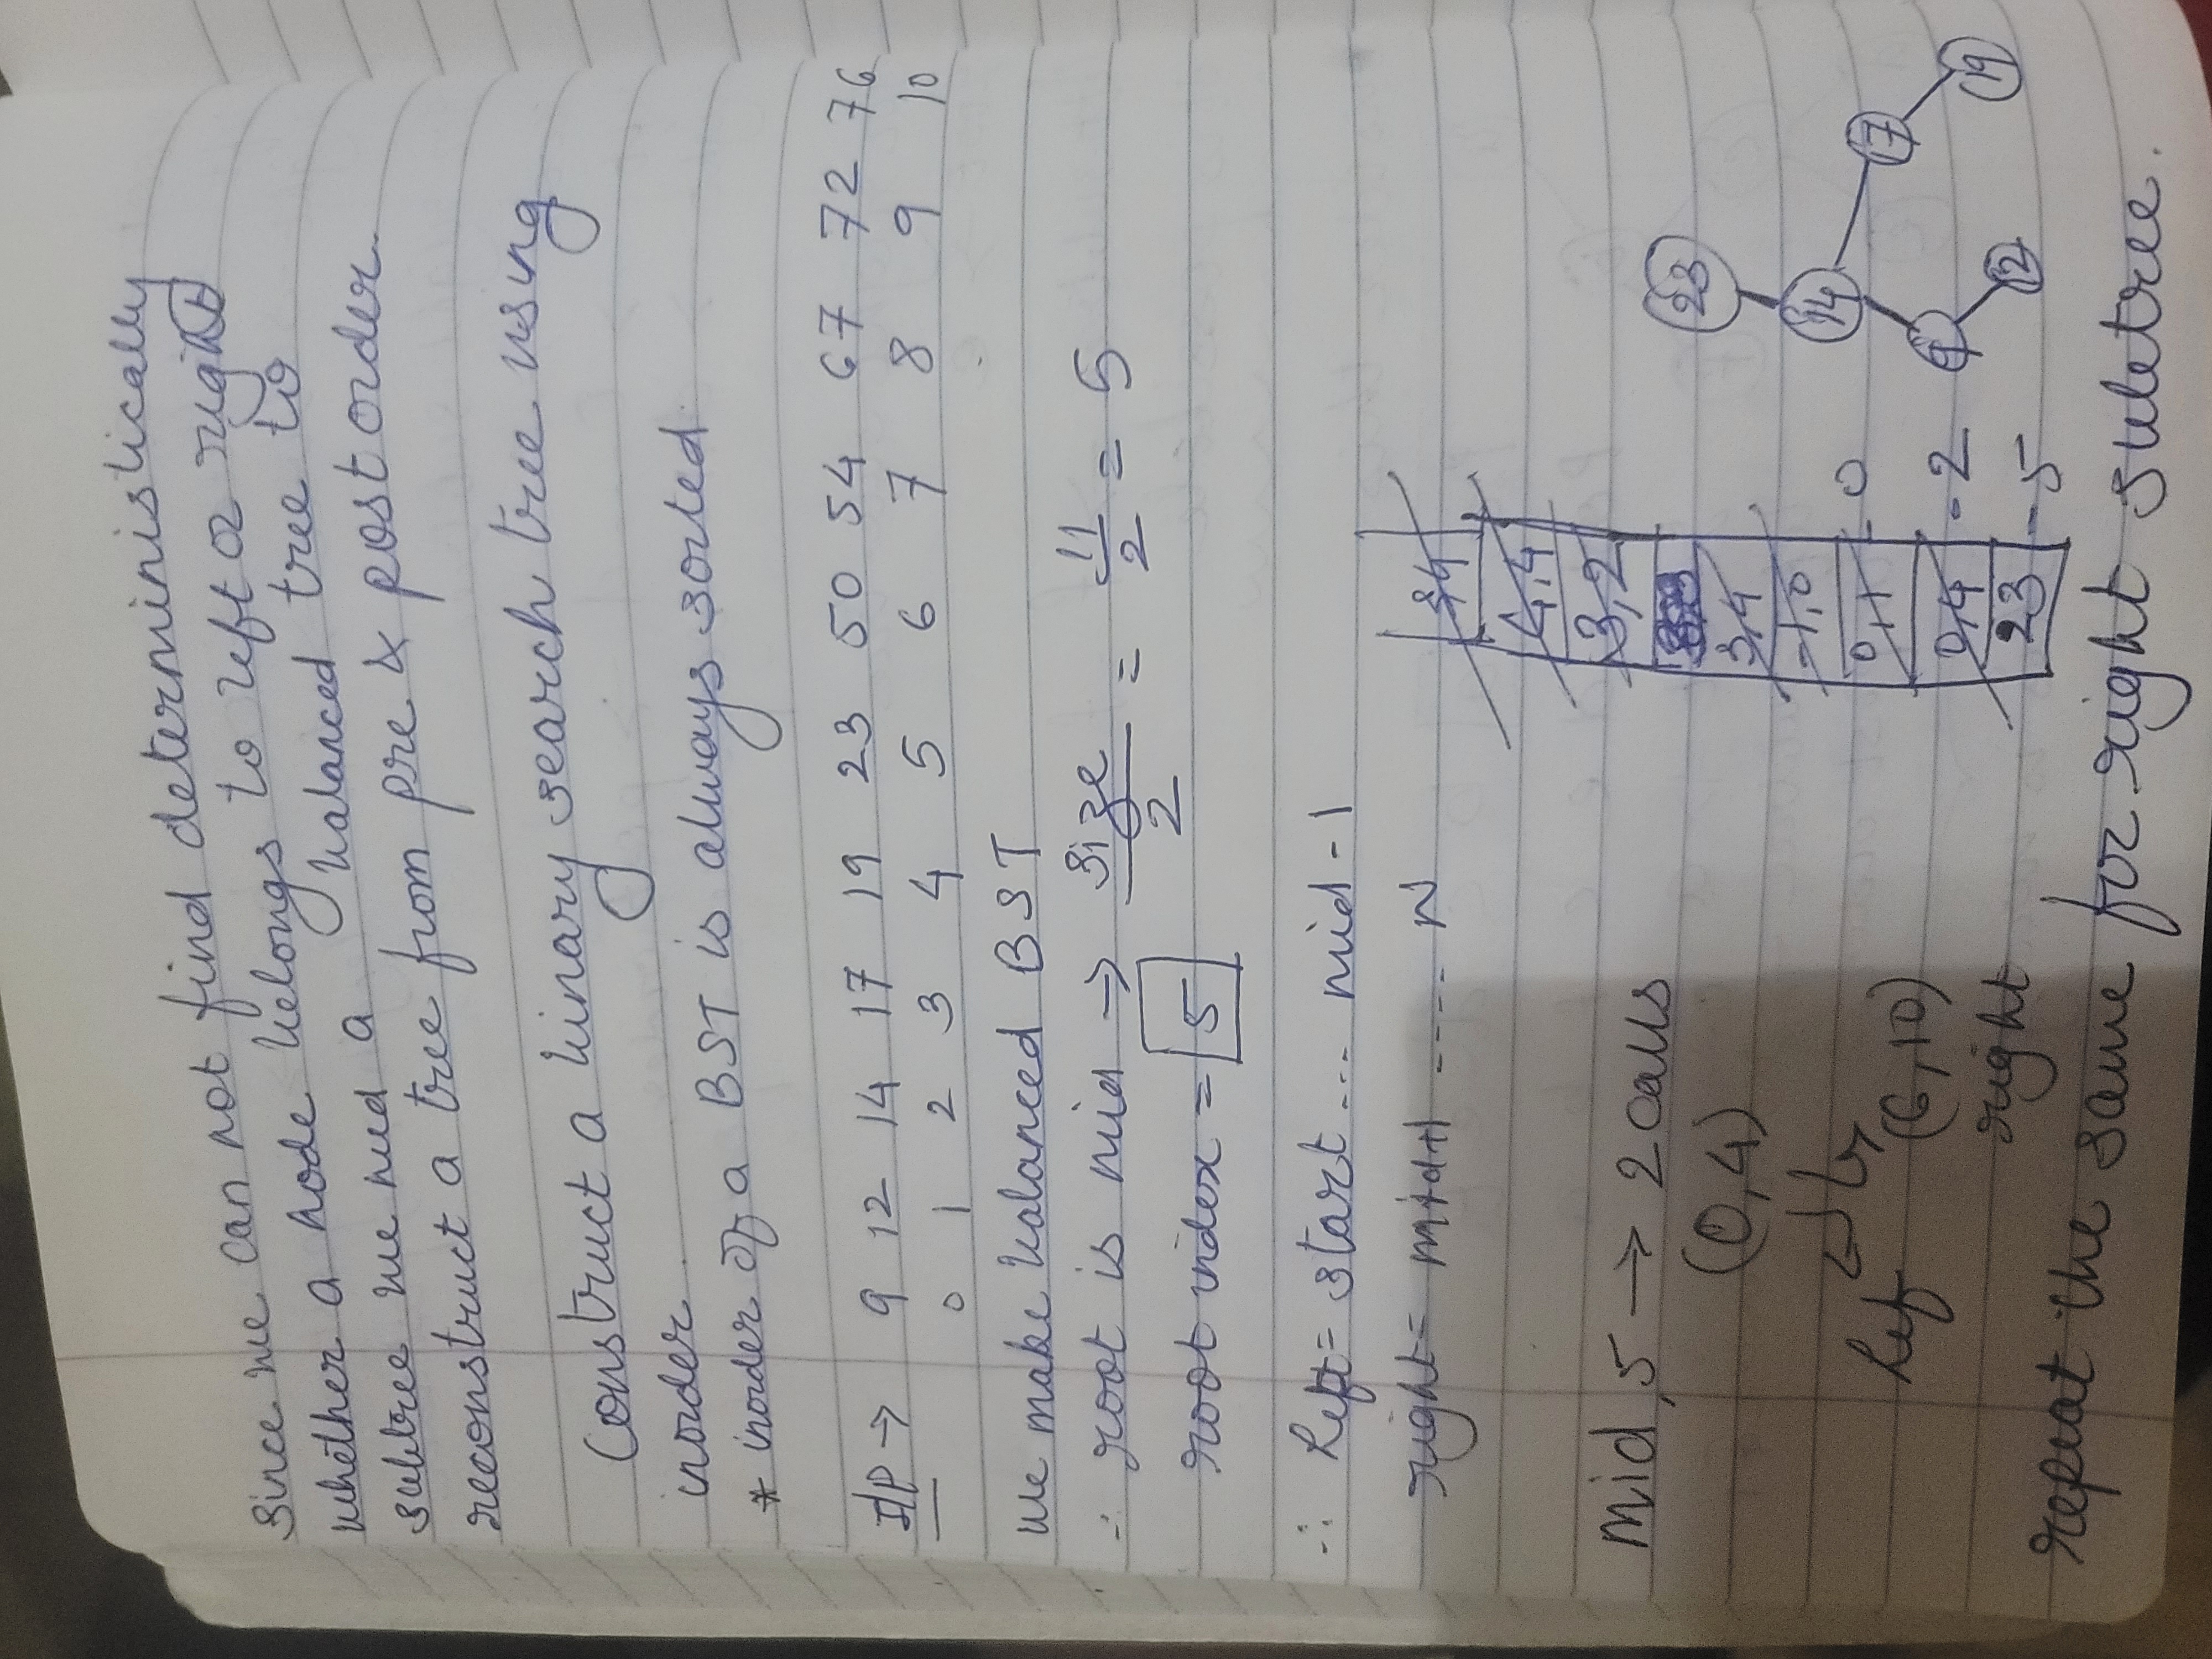 Since we can not find deterministically
whether a node belongs to left or right
subtree we need a balanced tree to
reconstruct a tree from pre & post order.
Construct a binary search tree using
inorder.
* inorder of a BST is always sorted.
I/P → 9 12 14 17 19 23 50 54 67 72 76
0 1 2 3 4 5 6 7 8 9 10
We make balanced BST
∴ root is mid → size/2 = 11/2 = 5
root index = 5
∴ Left = start ... mid-1
right = mid+1 .... N
4,4
3,2
mid, 5 → 2 calls
(0,4)
3,4
-1,0
Lef (6,10)
right
0,1 - 0
0,4 - 2
23 - 5
23
14
17
9
19
12
repeat the same for right subtree.